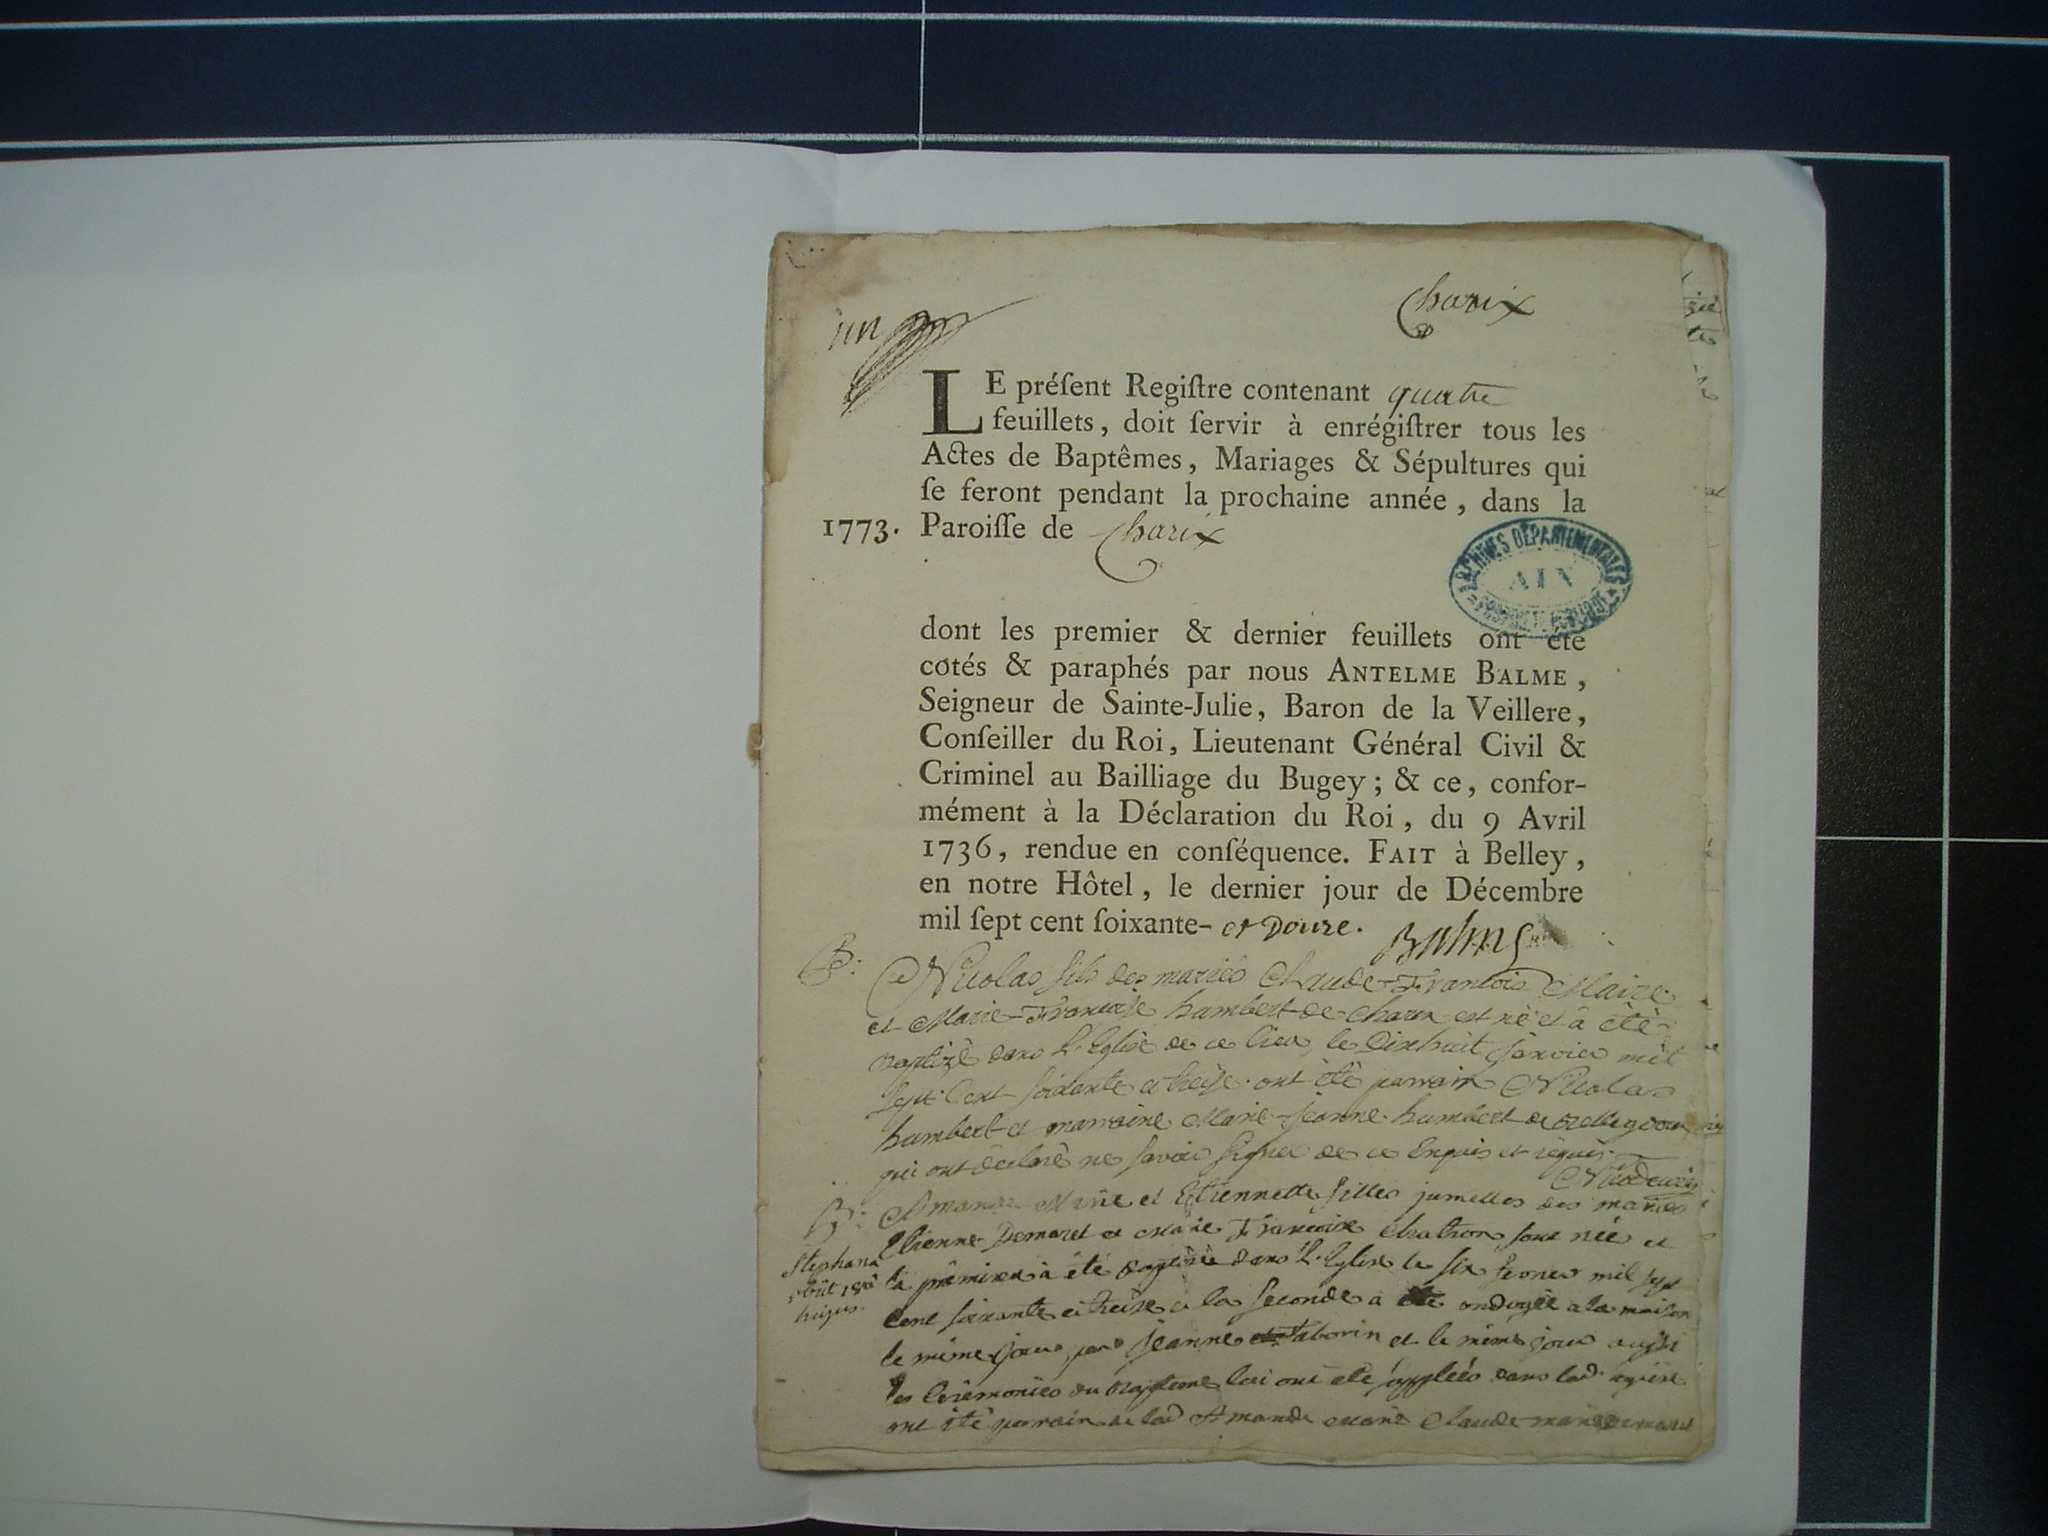 un
Charix
LE préſent Regiſtre contenant quatre
feuillets, doit ſervir à enrégiſtrer tous les
Actes de Baptêmes, Mariages & Sépultures qui
ſe feront pendant la prochaine année, dans la
1773. Paroiſſe de Charix
ARCHIVES DÉPARTEMENTALES
AIN
dont les premier & dernier feuillets ont été
cotés & paraphés par nous ANTELME BALME,
Seigneur de Sainte-Julie, Baron de la Veillere,
Conſeiller du Roi, Lieutenant Général Civil &
Criminel au Bailliage du Bugey; & ce, confor-
mément à la Déclaration du Roi, du 9 Avril
1736, rendue en conſéquence. FAIT à Belley,
en notre Hôtel, le dernier jour de Décembre
mil ſept cent ſoixante- et Douze. Balme
B: Nicolas fils des mariés Claude-François Maire
et Marie-Françoise humbert de Charix est né et à été
baptizé dans l'Eglise de ce lieu, le Dixhuit janvier mil
sept Cent soixante et treize. ont été parrain Nicolas
humbert et marraine Marie-jeanne humbert de
qui ont déclaré ne savoir signer de ce Enquis et requis.
B: Amande Marie et Etiennette filles jumelles des mariés
Etienne Demaret et Marie Françoise Chatron sont née et
Stephana
la prèmiere à été baptizée dans l'Eglise le six fevrier mil sept
cent soixante et treize et la seconde à été ondoyée a la maison
le même jour, par jeanne Taborin et le même jour aussi
les Cérèmonies du Baptême lui ont été supplées dans lad. eglise
ont été parrain de lad. Amande Marie Claude-marie Demaret